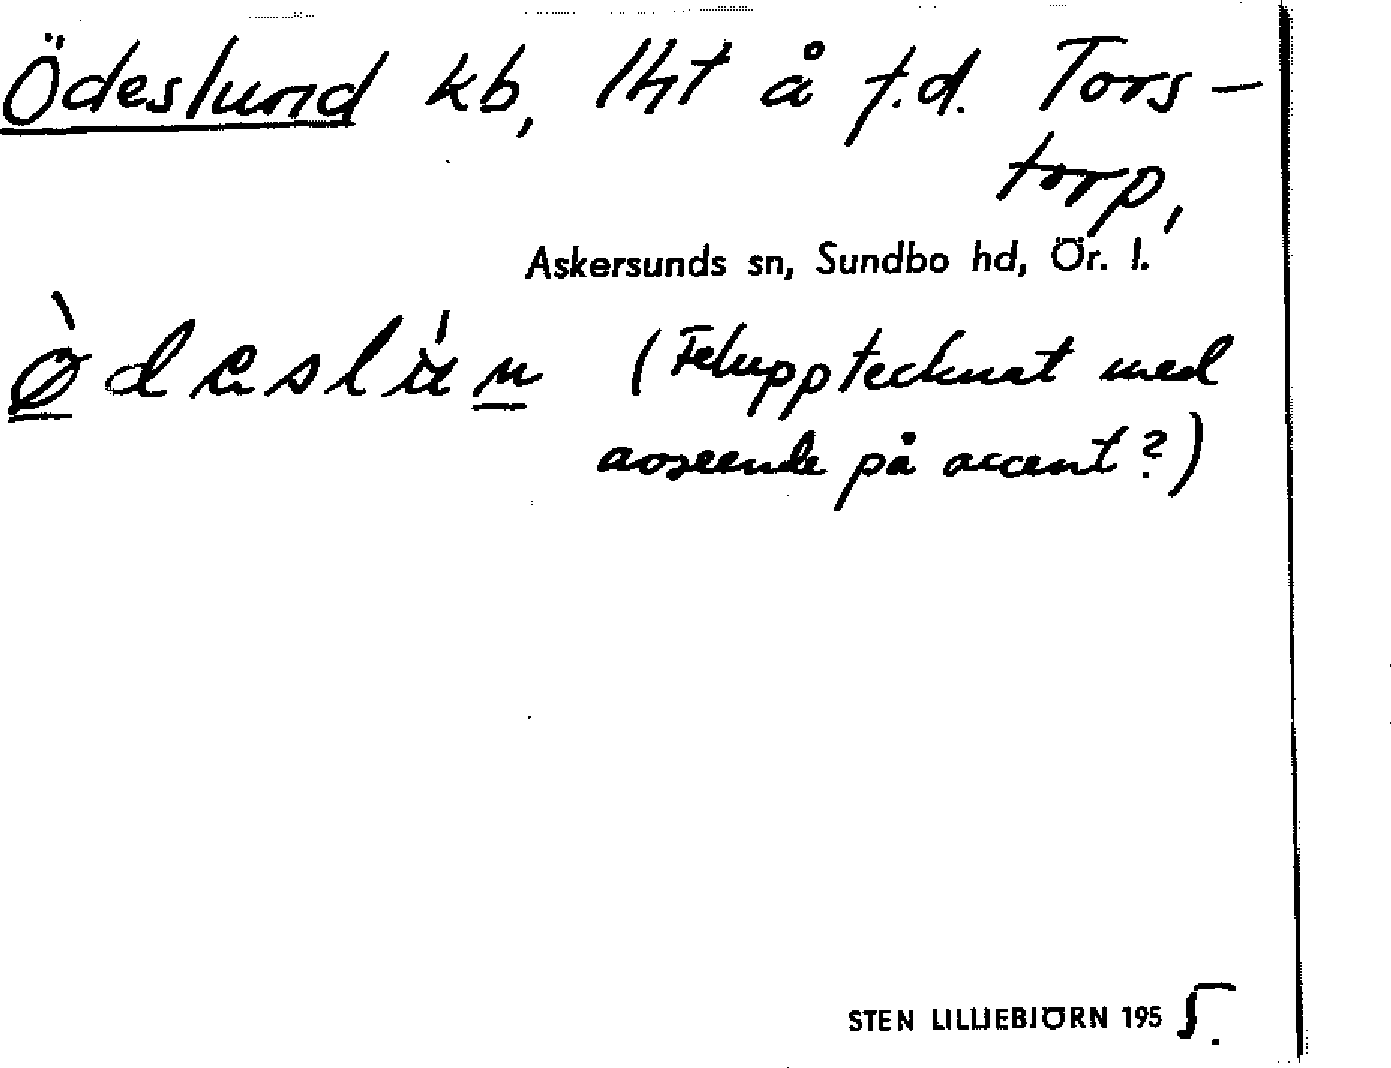 Ödeslund kb, lht å f.d. Tors-
torp,
Askersunds sn, Sundbo hd, Ör. l.
(Felupptecknat med
avseende på accent?)
STEN LILLIEBJÖRN 1955.